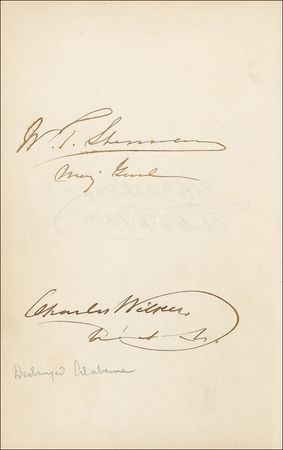 W. T. Sherman
Maj Genl
Charles Wilkes
Destroyed Alabama